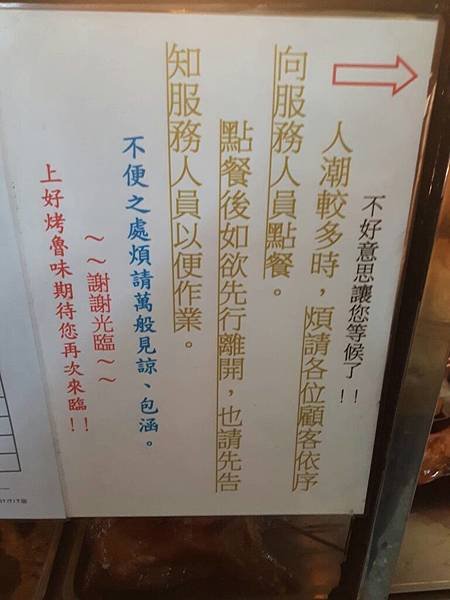 不好意思讓您等候了!!
人潮較多時，煩請各位顧客依序
向服務人員點餐。
點餐後如欲先行離開，也請先告
知服務人員以便作業。
不便之處煩請萬般見諒、包涵。
～～謝謝光臨～～
上好烤魯味期待您再次來臨!!